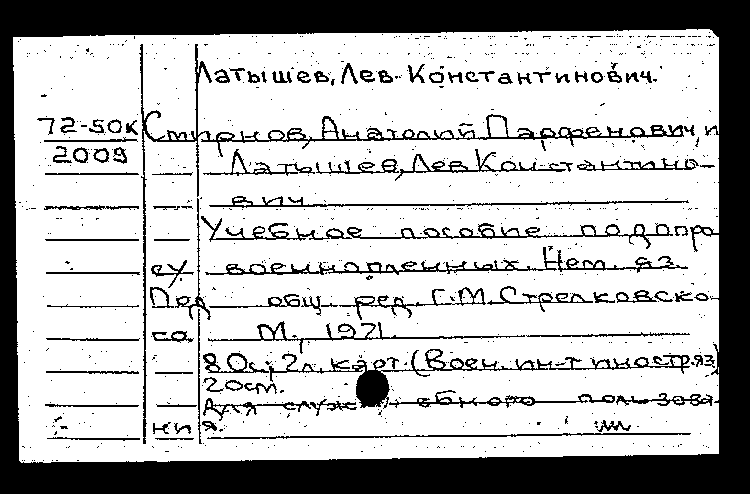 Латышев, Лев Константинович.
72-50к Смирнов, Анатолий Парфенович, и
2009 Латышев, Лев Константино-
вич
Учебное пособие по допро
су военнопленных. Нем. яз.
Под общ. ред. Г.М. Стрелковско-
го. М., 1971.
80с.; 2л. карт. (Воен. ин-т иностр яз)
20см.
Для служебного пользова-
ния.